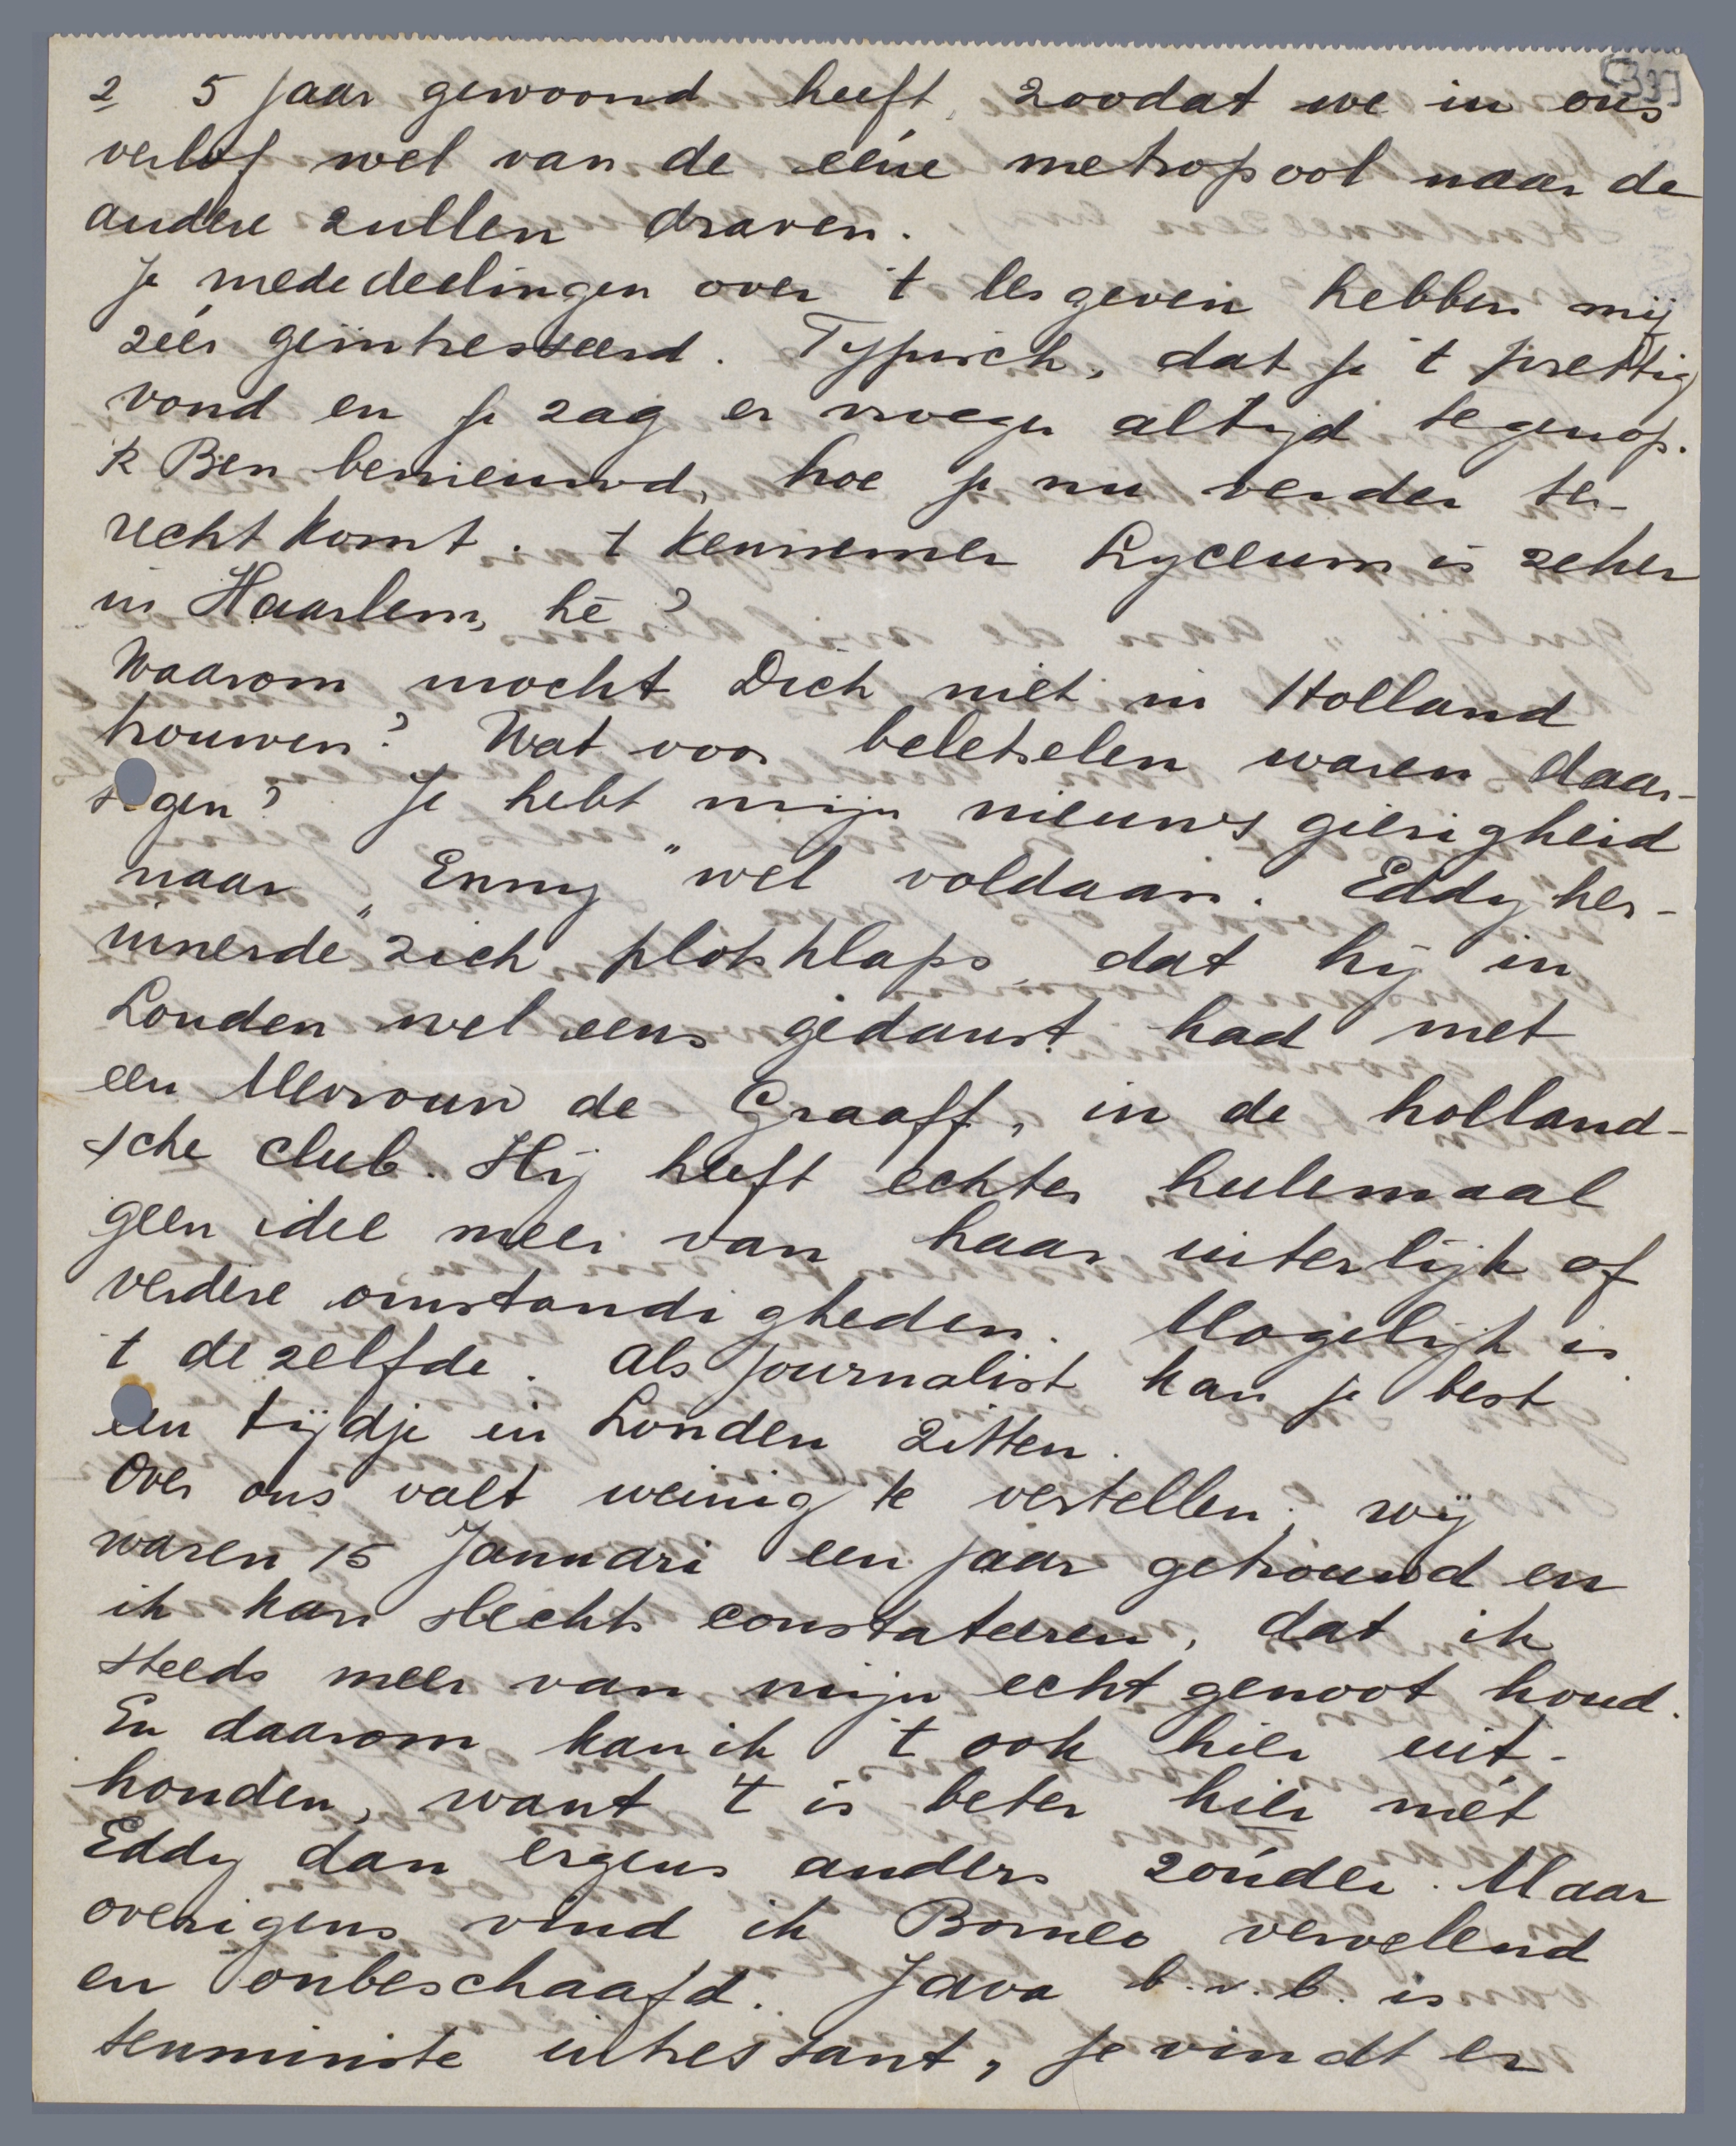 2 5 jaar gewoond heeft, zoodat we in ons
verlof wel van de ééne metropool naar de
andere zullen draven.
Je mededeelingen over 't lesgeven hebben mij
zéér geïntresseerd. Typisch, dat je 't prettig
vond en je zag er vroeger altijd tegenop.
'k Ben benieuwd, hoe je nu verder te-
recht komt. 't Kennemer Lyceum is zeker
in Haarlem, hè?
Waarom mocht Dich niet in Holland
trouwen? Wat voor beletselen waren daar-
tegen? Je hebt mijn nieuwsgierigheid
naar „Enny" wel voldaan. Eddy her-
innerde zich plotsklaps, dat hij in
Londen wel eens gedanst had met
een Mevrouw de Graaff, in de holland-
sche club. Hij heeft echter heelemaal
geen idee meer van haar uiterlijk of
verdere omstandigheden. Mogelijk is
't dezelfde. Als journalist kan je best
een tijdje in Londen zitten.
Over ons valt weinig te vertellen; wij
waren 15 Januari een jaar getrouwd en
ik kan slechts constateeren, dat ik
steeds meer van mijn echtgenoot houd.
En daarom kan ik 't ook hier uit-
houden, want 't is beter hier mét
Eddy dan ergens anders zónder. Maar
overigens vind ik Borneo vervelend
en onbeschaafd. Java b.v.b. is
tenminste intressant, je vindt er